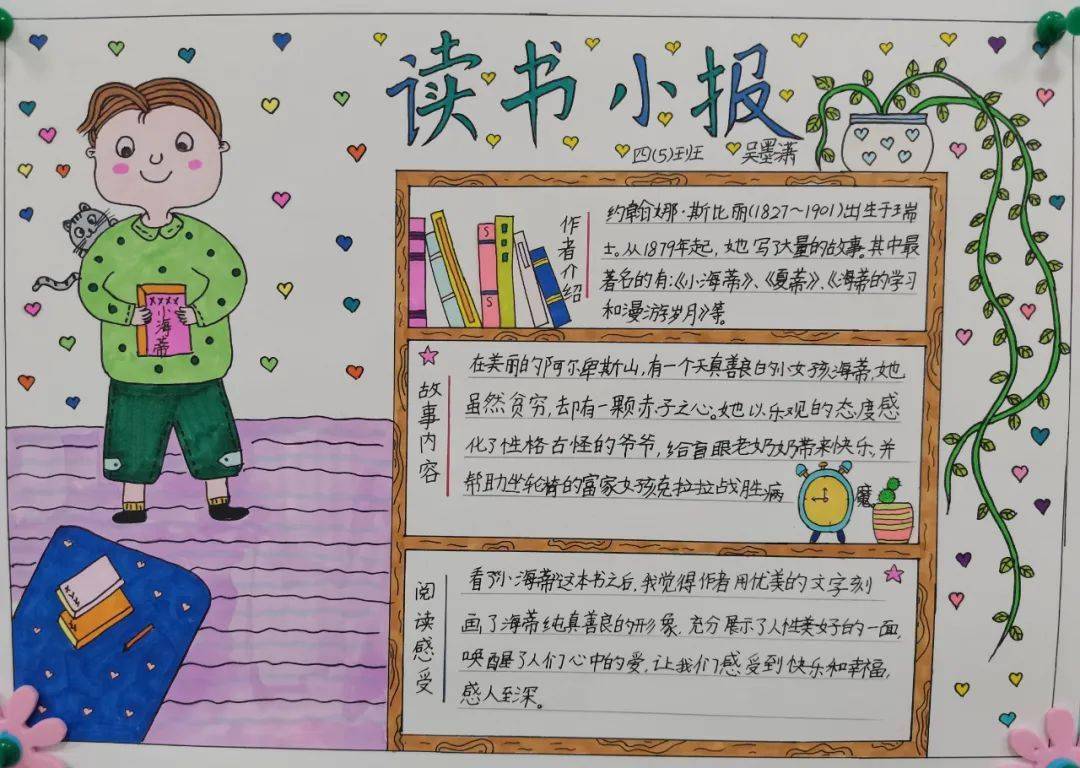 读书小报
四(5)班 吴墨潇
作者介绍
约翰娜·斯比丽(1827～1901)出生于瑞
士。从1879年起，她写了大量的故事。其中最
著名的有:《小海蒂》、《夏蒂》、《海蒂的学习
和漫游岁月》等。
xxxx
小海蒂
故事内容
在美丽的阿尔卑斯山，有一个天真善良的小女孩海蒂，她
虽然贫穷，却有一颗赤子之心。她以乐观的态度感
化了性格古怪的爷爷，给盲眼老奶奶带来快乐，并
帮助坐轮椅的富家女孩克拉拉战胜病魔
阅读感受
看了《小海蒂》这本书之后，我觉得作者用优美的文字刻
画了海蒂纯真善良的形象，充分展示了人性美好的一面，
唤醒了人们心中的爱，让我们感受到快乐和幸福，
感人至深。